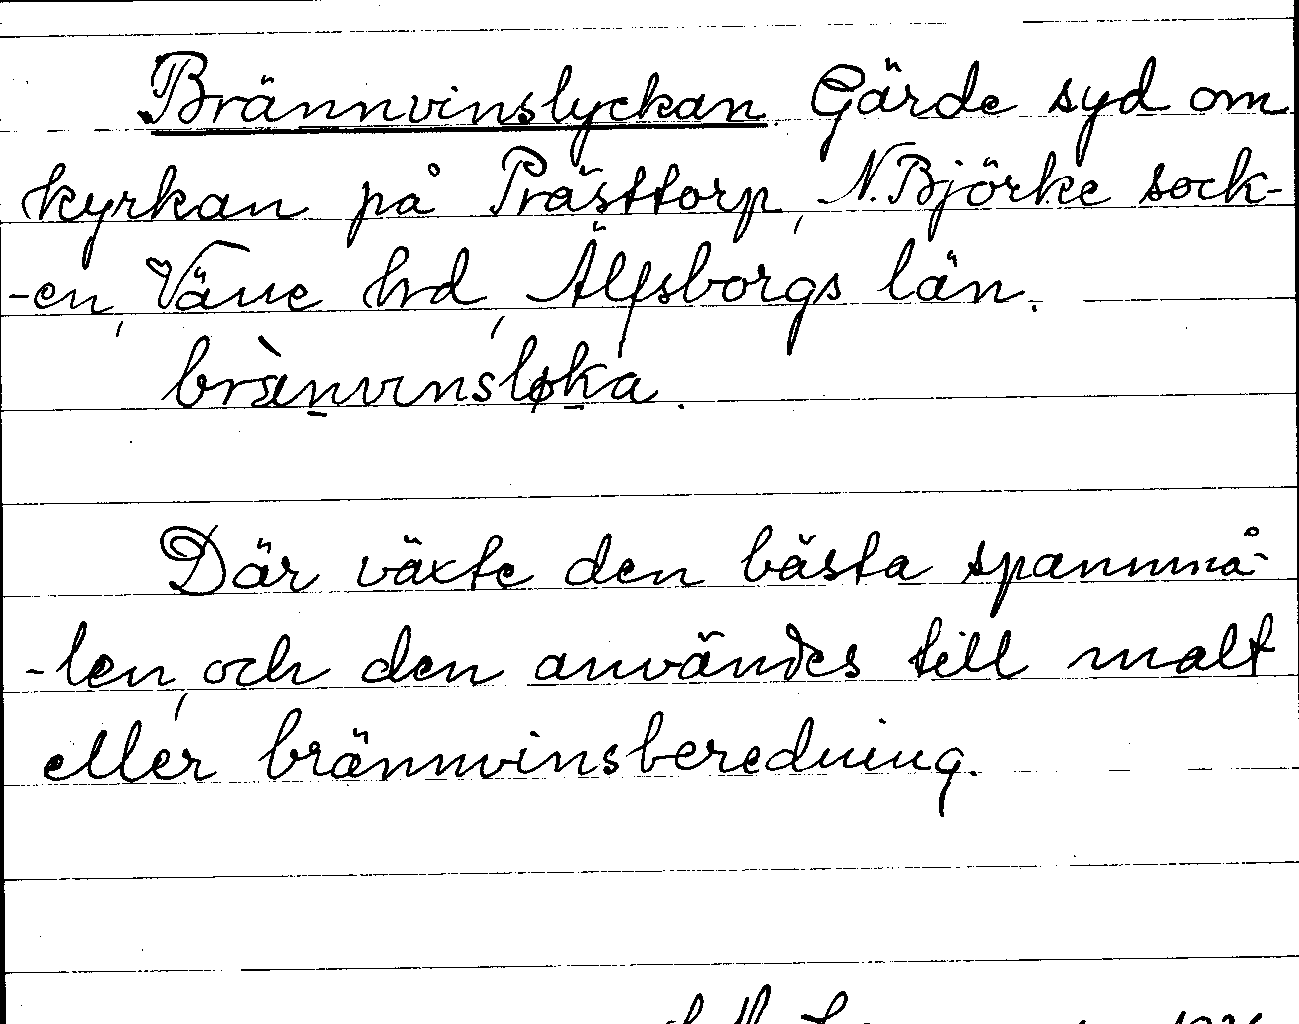 Brännvinslyckan. Gärde syd om
kyrkan på Prästtorp, N. Björke sock-
-en, Väne hrd, Älfsborgs län.
brànvinsløka.
Där växte den bästa spannmå-
-len, och den användes till malt
eller brännvinsberedning.